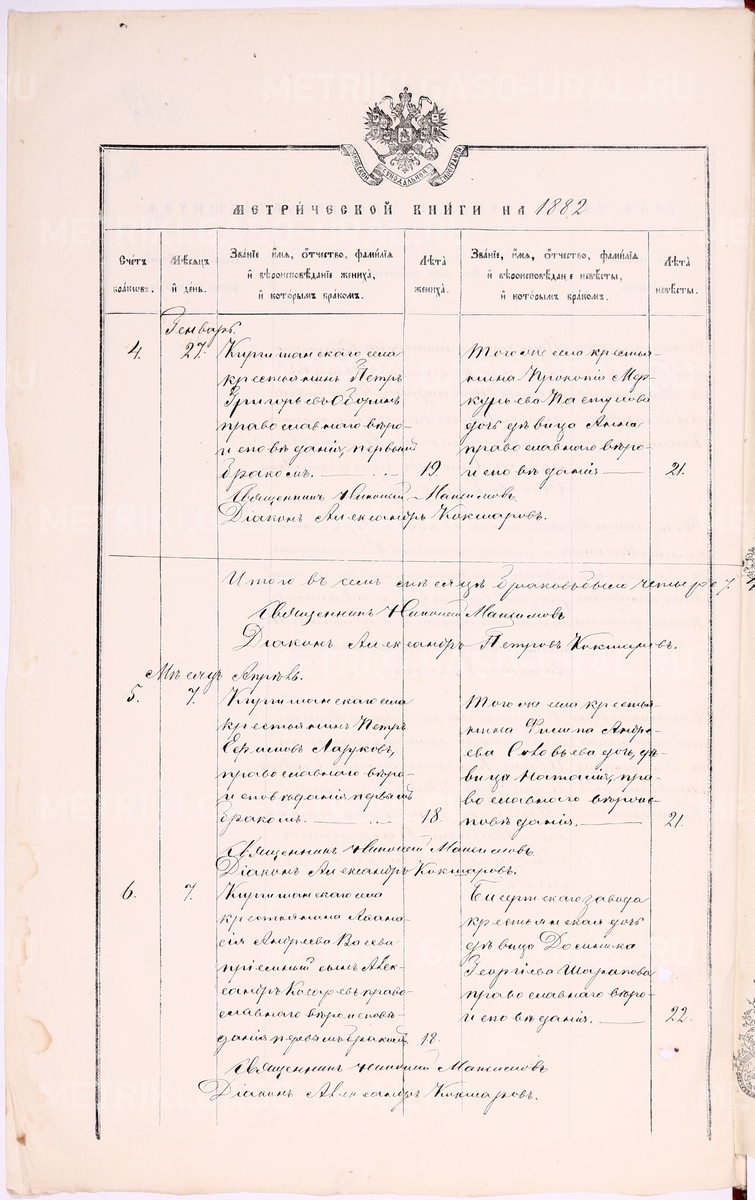 METRIKI.GASO-URAL.RU
МЕТРИ́ЧЕСКОЙ КНИ́ГИ НА 1882
Счетъ бра́ковъ.
Мѣсяцъ и҆ де́нь.
Зва́нїе и҆мя, ѻ҆тчество, фами́лїя и҆ вѣроисповѣ́данїе жениха̀, и҆ кото́рымъ бра́комъ.
Лѣта̀ жениха̀.
Зва́нїе, и҆мя, ѻ҆тчество, фами́лїя и҆ вѣроисповѣ́данїе невѣ́сты, и҆ кото́рымъ бра́комъ.
Лѣта̀ невѣ́сты.
Генварь.
4.
27.
Киргишанскаго села
крестьянинъ Петръ
Григорьевъ Оборинъ
православнаго вѣро-
исповѣданія, первымъ
бракомъ.
19
Того же села крестья-
нина Прокопія Мер-
курьева Пастухова
дочь дѣвица Анна
православнаго вѣро-
исповѣданія
21.
Священникъ Николай Максимовъ
Діаконъ Александръ Кокшаровъ.
Итого въ семъ мѣсяцѣ браковъ было четыре
Священникъ Николай Максимовъ
Діаконъ Александръ Петровъ Кокшаровъ.
Мѣсяцъ Апрѣль.
5.
7.
Киргишанскаго села
крестьянинъ Петръ
православнаго вѣро-
исповѣданія первымъ
бракомъ.
18.
Того же села крестья-
нина Филипа Андре-
ева Соловьева дочь, дѣ-
вица Наталія, пра-
вославнаго вѣроис-
повѣданія.
21.
Священникъ Николай Максимовъ
Діаконъ Александръ Кокшаровъ.
6.
7.
Киргишанскаго села
крестьянина Афана-
сія Андреева Васева
пріемный сынъ Алек-
сандръ Косаревъ право-
славнаго вѣроисповѣ-
данія первымъ бракомъ
18.
Бисертскаго завода
крестьянская дочь
дѣвица Домника
Георгіева Шарапова
православнаго вѣро-
исповѣданія.
22.
Священникъ Николай Максимовъ
Діаконъ Александръ Кокшаровъ.